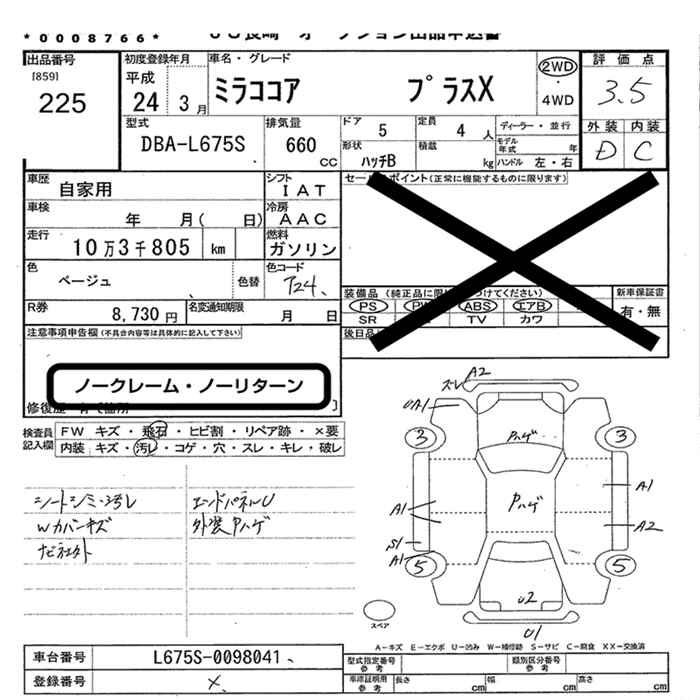 *0008766*
出品番号
[859]
225
初度登録年月
平成
24 3 月
車名・グレード
ミラココア プラスX
2WD
4WD
評価点
3.5
外装 内装
D C
型式
DBA-L675S
排気量
660
cc
ドア 5
定員 4 人
ディーラー・並行
形状 ハッチB
積載 kg
モデル年式 年
ハンドル 左・右
車歴
自家用
シフト
IAT
セールスポイント(正常に機能するものに限ります)
車検
年 月( 日)
冷房
AAC
走行
10万3千805 km
燃料
ガソリン
色
ベージュ
色替
色コード
T24
装備品
新車保証書
PS PW ABS エアB
有・無
SR TV カワ
R券
8,730 円
名変通知期限
月 日
後日品
注意事項申告欄(不具合内容等は具体的に記入して下さい)
ノークレーム・ノーリターン
検査員記入欄
FW キズ・飛石・ヒビ割・リペア跡・×要
内装 キズ・汚レ・コゲ・穴・スレ・キレ・破レ
シートシミ・汚レ
エンドパネルU
Wカバーキズ
外装Pハゲ
ナビ社外
スレ A2
UA1
3 Pハゲ 3
A1 Pハゲ A1
A1 A2
S1
A1
5 5
U2
U1
スペア
A-キズ E-エクボ U-凹み W-補修跡 S-サビ C-腐食 XX-交換済
車台番号
L675S-0098041
型式指定番号 参考
類別区分番号 参考
登録番号
×
車庫証明用 参考
長さ cm
幅 cm
高さ cm